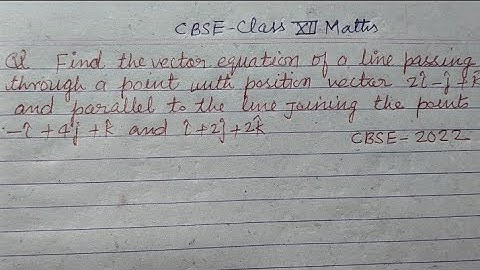 CBSE-Class XII Maths
Q1 Find the vector equation of a line passing
through a point with position vector 2î-ĵ+k̂
and parallel to the line joining the points
-î+4ĵ+k̂ and î+2ĵ+2k̂
CBSE-2022